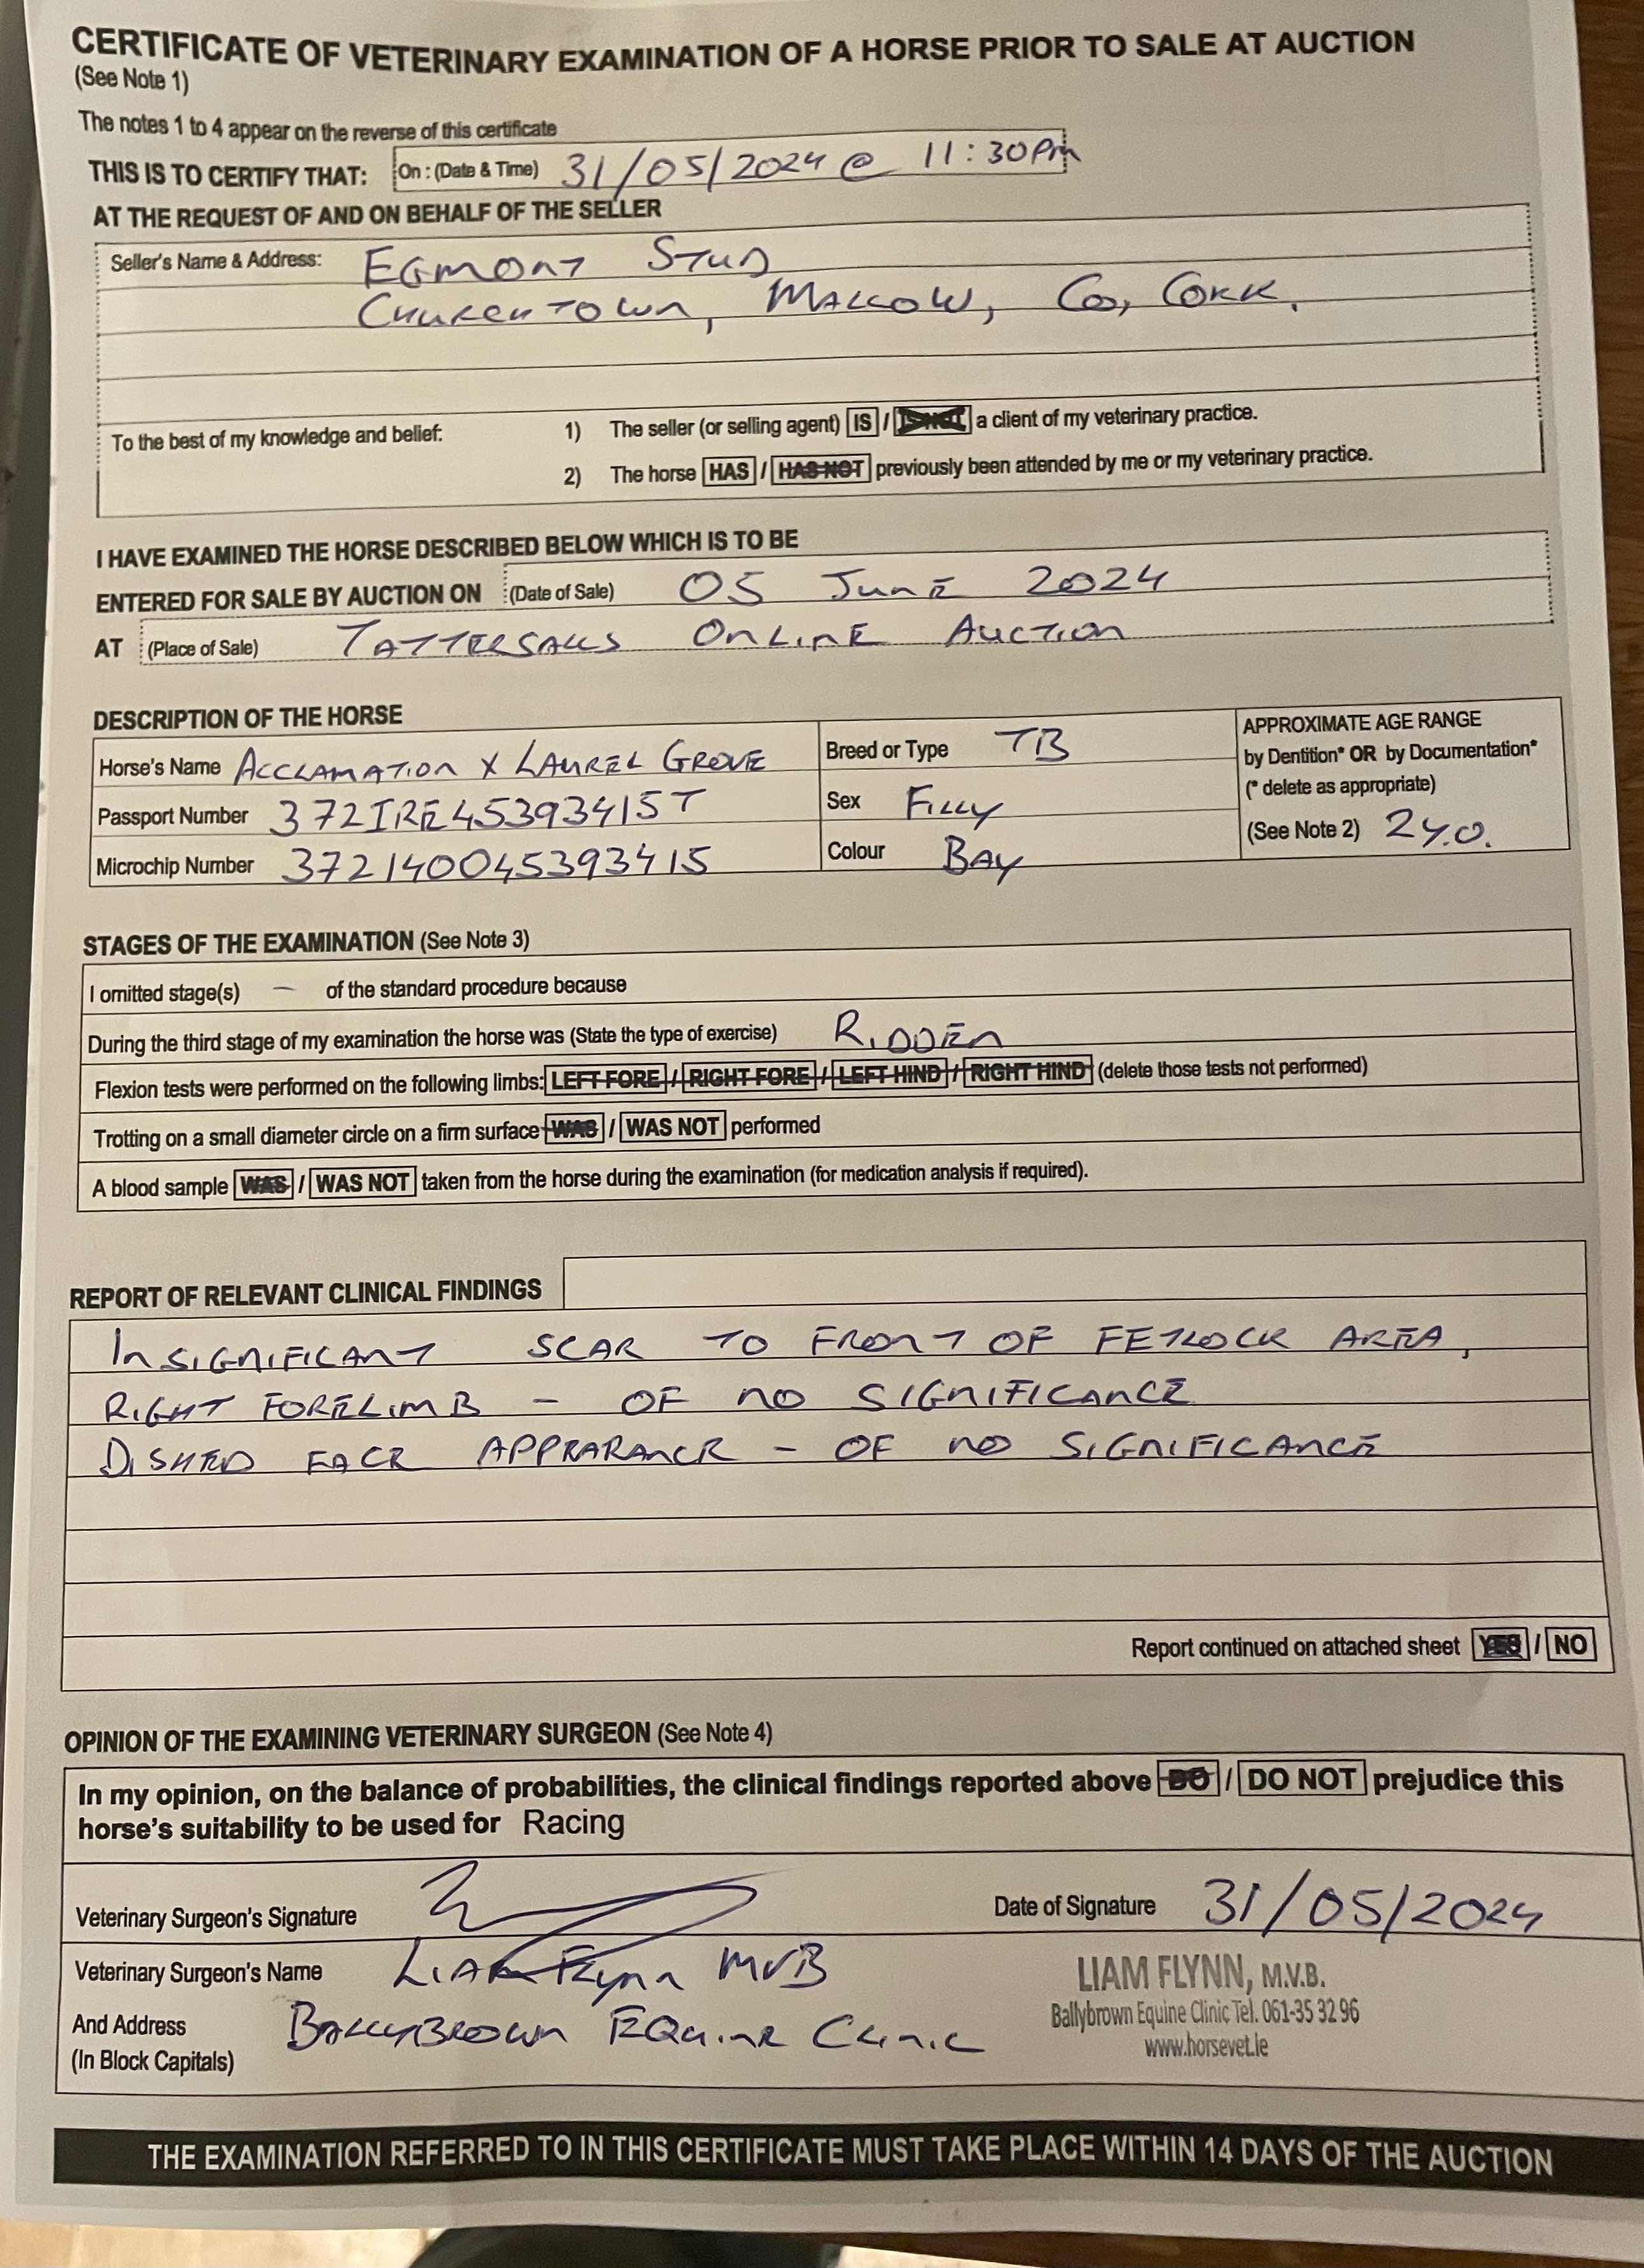 CERTIFICATE OF VETERINARY EXAMINATION OF A HORSE PRIOR TO SALE AT AUCTION
(See Note 1)
The notes 1 to 4 appear on the reverse of this certificate
THIS IS TO CERTIFY THAT: On : (Date & Time) 31/05/2024 @ 11:30Pm
AT THE REQUEST OF AND ON BEHALF OF THE SELLER
Seller's Name & Address: EGMONT STUD
CHURCHTOWN, MALLOW, CO, CORK.
To the best of my knowledge and belief: 1) The seller (or selling agent) IS / IS NOT a client of my veterinary practice.
2) The horse HAS / HAS NOT previously been attended by me or my veterinary practice.
I HAVE EXAMINED THE HORSE DESCRIBED BELOW WHICH IS TO BE
ENTERED FOR SALE BY AUCTION ON (Date of Sale) 05 JUNE 2024
AT (Place of Sale) TATTERSALLS ONLINE AUCTION
DESCRIPTION OF THE HORSE
Horse's Name ACCLAMATION X LAUREL GROVE Breed or Type TB APPROXIMATE AGE RANGE
by Dentition* OR by Documentation*
Passport Number 372IRE45393415T Sex FILLY (* delete as appropriate)
Microchip Number 372140045393415 Colour BAY (See Note 2) 2y.o.
STAGES OF THE EXAMINATION (See Note 3)
I omitted stage(s) – of the standard procedure because
During the third stage of my examination the horse was (State the type of exercise) RIDDEN
Flexion tests were performed on the following limbs: LEFT FORE / RIGHT FORE / LEFT HIND / RIGHT HIND (delete those tests not performed)
Trotting on a small diameter circle on a firm surface WAS / WAS NOT performed
A blood sample WAS / WAS NOT taken from the horse during the examination (for medication analysis if required).
REPORT OF RELEVANT CLINICAL FINDINGS
INSIGNIFICANT SCAR TO FRONT OF FETLOCK AREA,
RIGHT FORELIMB – OF NO SIGNIFICANCE
DISHED FACE APPEARANCE – OF NO SIGNIFICANCE
Report continued on attached sheet YES / NO
OPINION OF THE EXAMINING VETERINARY SURGEON (See Note 4)
In my opinion, on the balance of probabilities, the clinical findings reported above DO / DO NOT prejudice this
horse's suitability to be used for Racing
Veterinary Surgeon's Signature Date of Signature 31/05/2024
Veterinary Surgeon's Name LIAM FLYNN MVB
And Address BALLYBROWN EQUINE CLINIC
(In Block Capitals)
LIAM FLYNN, M.V.B.
Ballybrown Equine Clinic Tel. 061-35 32 96
www.horsevet.ie
THE EXAMINATION REFERRED TO IN THIS CERTIFICATE MUST TAKE PLACE WITHIN 14 DAYS OF THE AUCTION